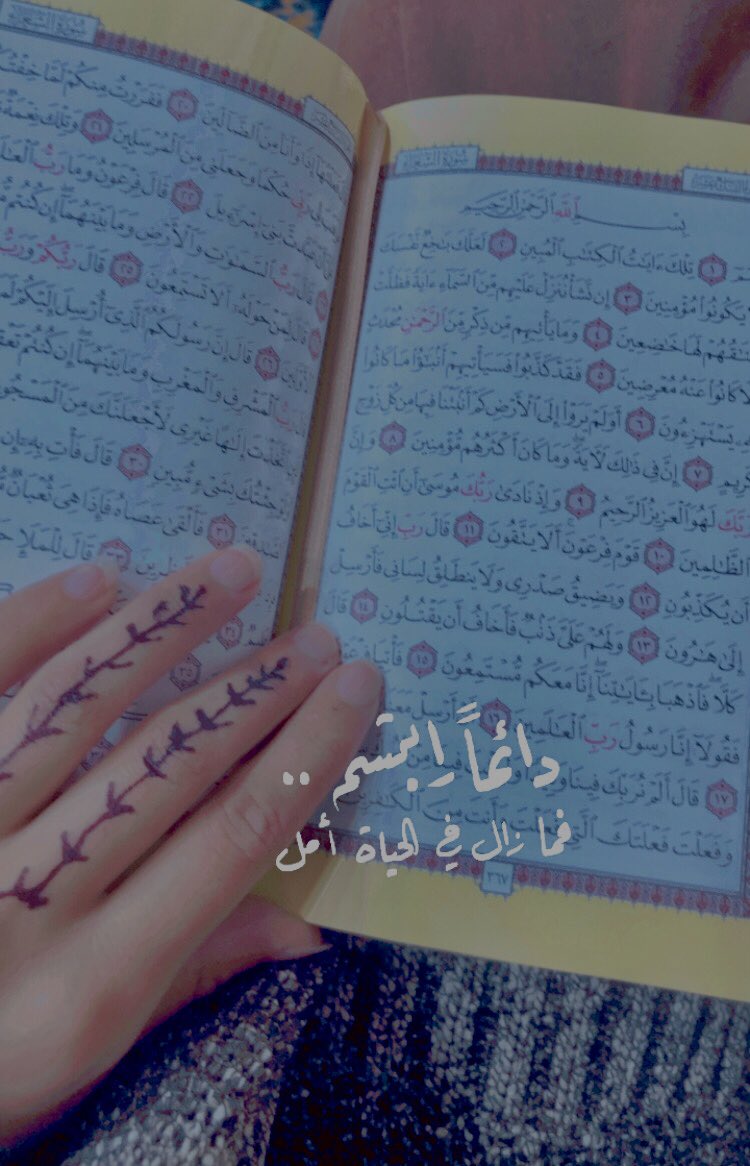 سُورَةُ الشُّعَرَاءِ
بِسْمِ اللَّهِ الرَّحْمَٰنِ الرَّحِيمِ
١ تِلْكَ ءَايَٰتُ ٱلْكِتَٰبِ ٱلْمُبِينِ ٢ لَعَلَّكَ بَٰخِعٌ نَّفْسَكَ
يَكُونُوا۟ مُؤْمِنِينَ ٣ إِن نَّشَأْ نُنَزِّلْ عَلَيْهِم مِّنَ ٱلسَّمَآءِ ءَايَةً فَظَلَّتْ
لَهَا خَٰضِعِينَ ٤ وَمَا يَأْتِيهِم مِّن ذِكْرٍ مِّنَ ٱلرَّحْمَٰنِ مُحْدَثٍ
كَانُوا۟ عَنْهُ مُعْرِضِينَ ٥ فَقَدْ كَذَّبُوا۟ فَسَيَأْتِيهِمْ أَنۢبَٰٓؤُا۟ مَا كَانُوا۟
يَسْتَهْزِءُونَ ٦ أَوَلَمْ يَرَوْا۟ إِلَى ٱلْأَرْضِ كَمْ أَنۢبَتْنَا فِيهَا مِن كُلِّ زَوْجٍ
كَرِيمٍ ٧ إِنَّ فِى ذَٰلِكَ لَءَايَةً وَمَا كَانَ أَكْثَرُهُم مُّؤْمِنِينَ ٨ وَإِنَّ
رَبَّكَ لَهُوَ ٱلْعَزِيزُ ٱلرَّحِيمُ ٩ وَإِذْ نَادَىٰ رَبُّكَ مُوسَىٰٓ أَنِ ٱئْتِ ٱلْقَوْمَ
ٱلظَّٰلِمِينَ ١٠ قَوْمَ فِرْعَوْنَ أَلَا يَتَّقُونَ ١١ قَالَ رَبِّ إِنِّىٓ أَخَافُ
أَن يُكَذِّبُونِ ١٢ وَيَضِيقُ صَدْرِى وَلَا يَنطَلِقُ لِسَانِى فَأَرْسِلْ
إِلَىٰ هَٰرُونَ ١٣ وَلَهُمْ عَلَىَّ ذَنۢبٌ فَأَخَافُ أَن يَقْتُلُونِ ١٤ قَالَ
كَلَّا فَٱذْهَبَا بِـَٔايَٰتِنَآ إِنَّا مَعَكُم مُّسْتَمِعُونَ ١٥ فَأْتِيَا
فَقُولَآ إِنَّا رَسُولُ رَبِّ ٱلْعَٰلَمِينَ ١٦ أَرْسِلْ
١٧ قَالَ أَلَمْ نُرَبِّكَ فِينَا
وَفَعَلْتَ فَعْلَتَكَ ٱلَّتِى فَعَلْتَ وَأَنتَ مِنَ ٱلْكَٰفِرِينَ
٣٦٧
سُورَةُ الشُّعَرَاءِ
وَأَنَا۠ مِنَ ٱلضَّآلِّينَ ٢٠ فَفَرَرْتُ مِنكُمْ لَمَّا خِفْتُكُمْ
حُكْمًا وَجَعَلَنِى مِنَ ٱلْمُرْسَلِينَ ٢١ وَتِلْكَ نِعْمَةٌ
٢٢ قَالَ فِرْعَوْنُ وَمَا رَبُّ
قَالَ رَبُّ ٱلسَّمَٰوَٰتِ وَٱلْأَرْضِ وَمَا بَيْنَهُمَآ إِن كُنتُم
قَالَ لِمَنْ حَوْلَهُۥٓ أَلَا تَسْتَمِعُونَ ٢٥ قَالَ رَبُّكُمْ وَرَبُّ
٢٦ قَالَ إِنَّ رَسُولَكُمُ ٱلَّذِىٓ أُرْسِلَ إِلَيْكُمْ
رَبُّ ٱلْمَشْرِقِ وَٱلْمَغْرِبِ وَمَا بَيْنَهُمَآ إِن كُنتُمْ
ٱتَّخَذْتَ إِلَٰهًا غَيْرِى لَأَجْعَلَنَّكَ مِنَ
جِئْتُكَ بِشَىْءٍ مُّبِينٍ ٣٠ قَالَ فَأْتِ بِهِۦٓ إِن
٣١ فَأَلْقَىٰ عَصَاهُ فَإِذَا هِىَ ثُعْبَانٌ
٣٣ قَالَ لِلْمَلَإِ
دائماً ابتسم ..
فما زال في الحياة أمل